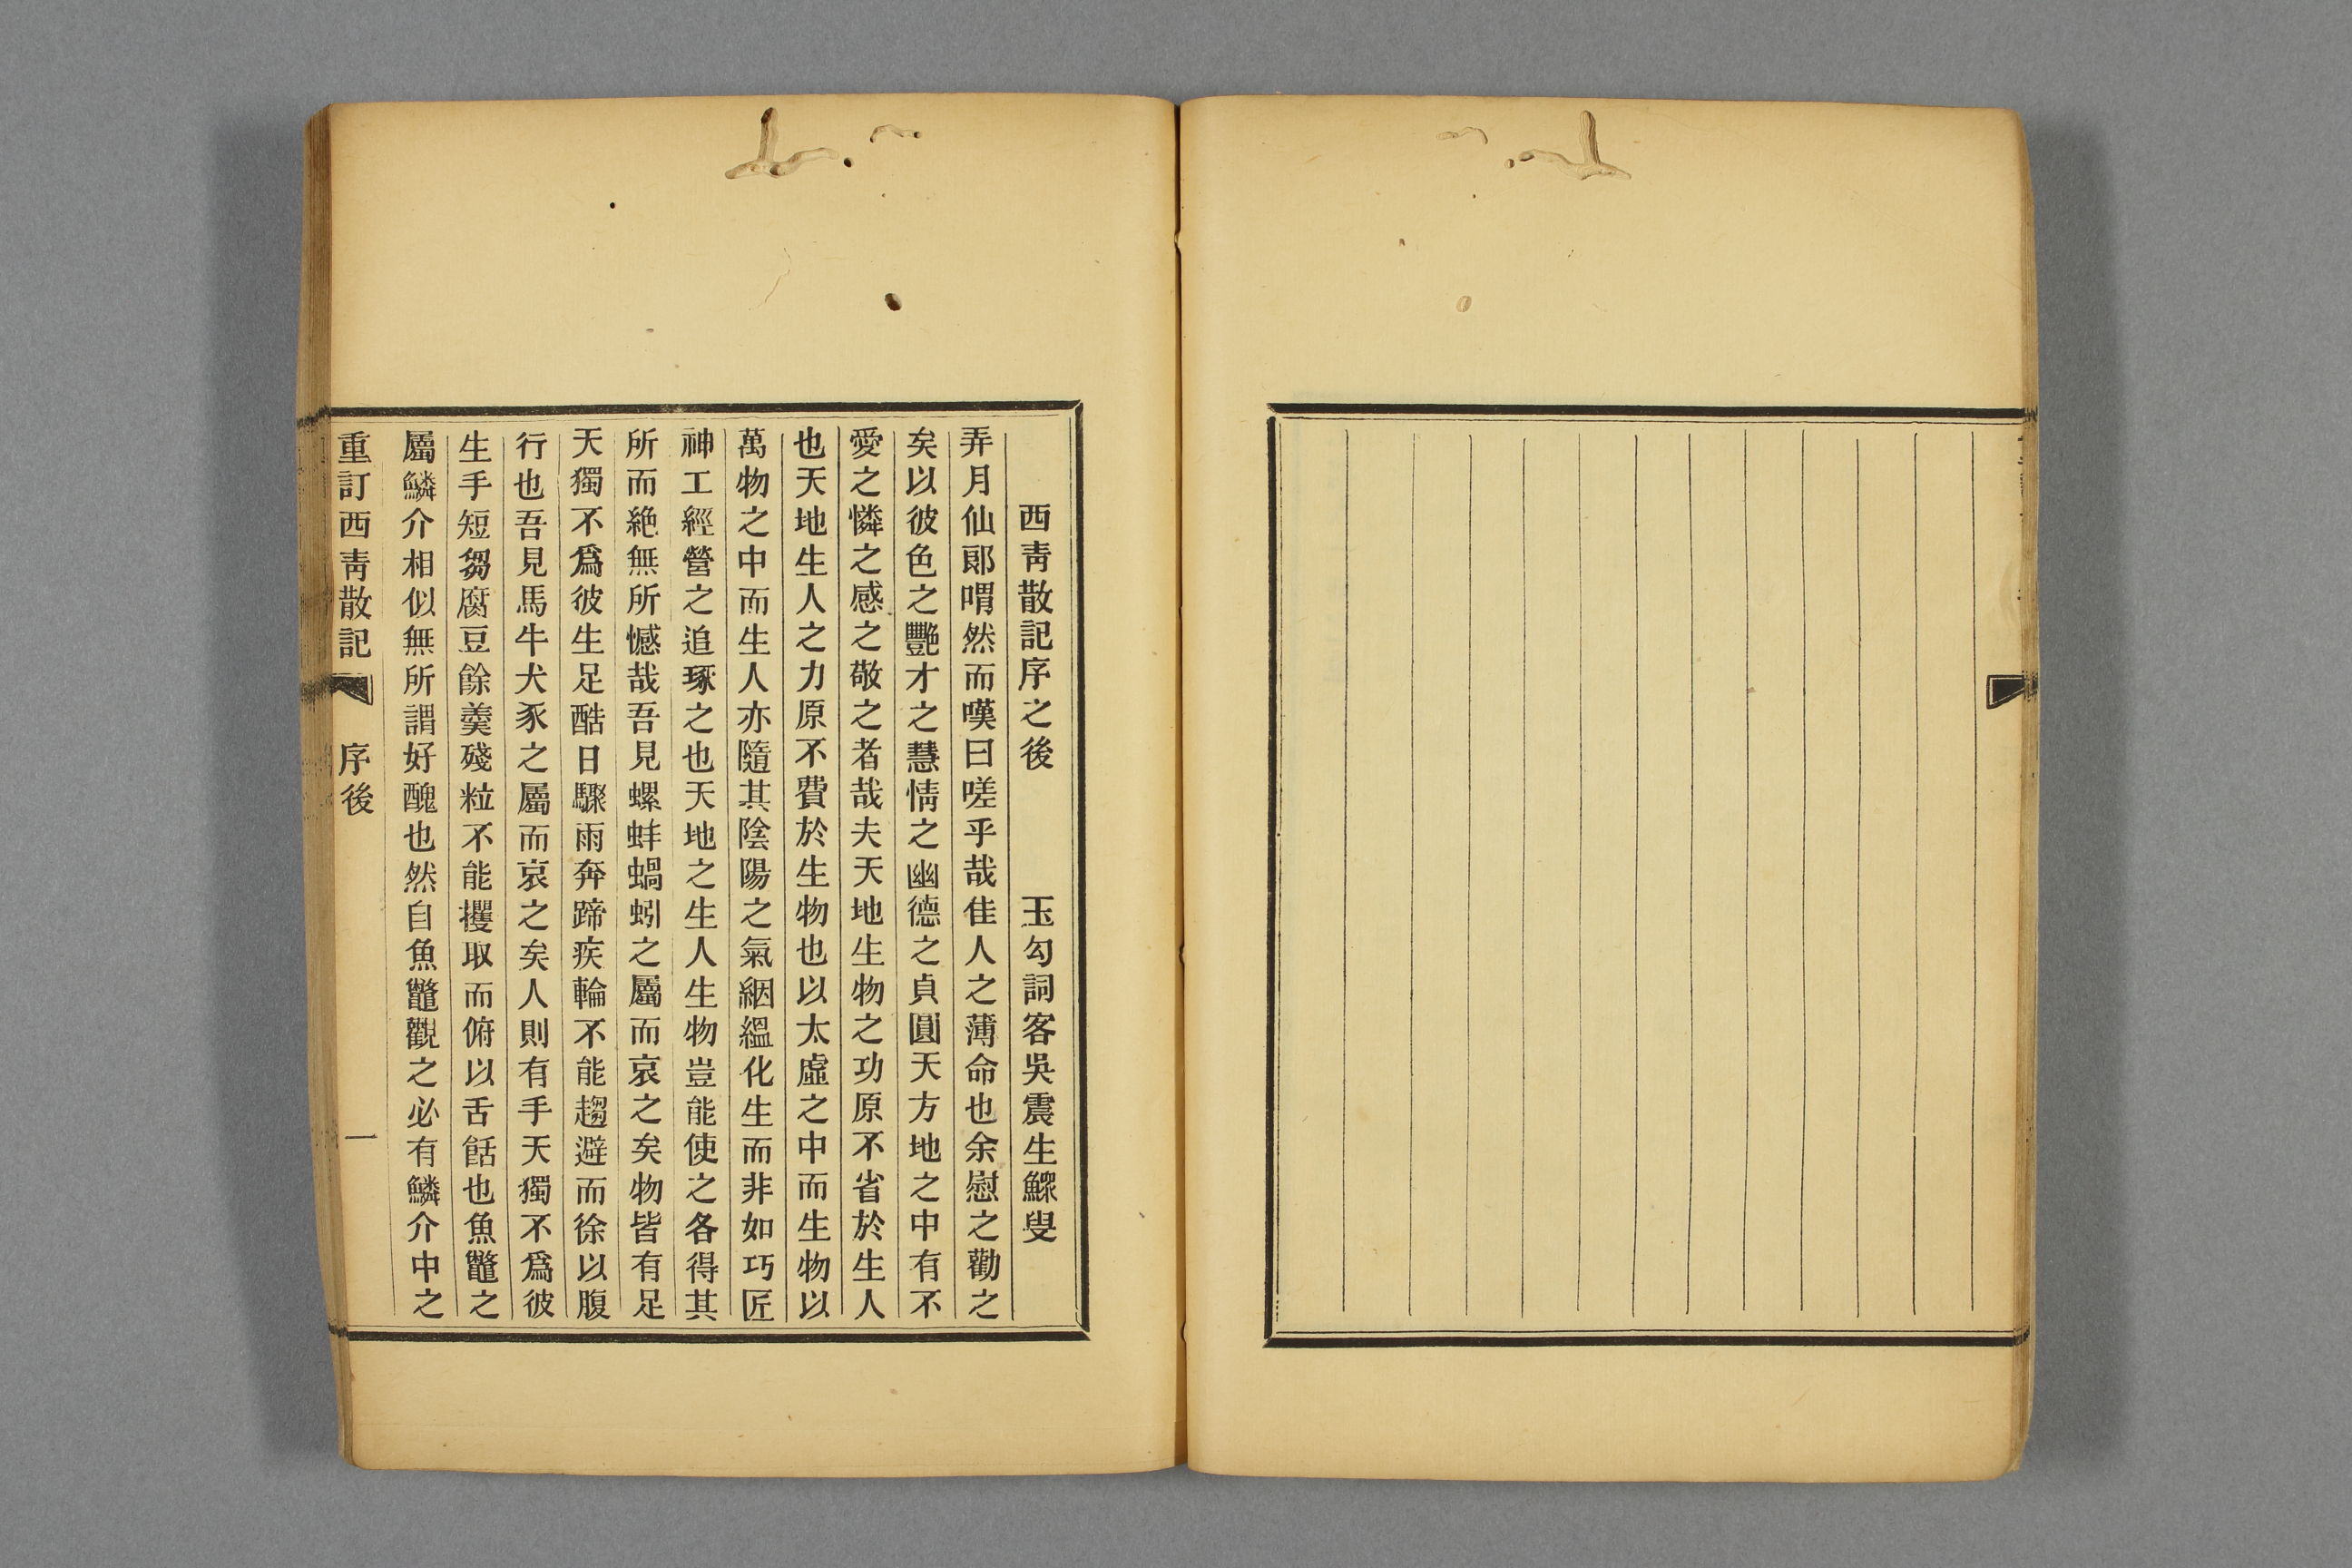 西靑散記序之後　玉勾詞客吳震生鰥叟
弄月仙郎喟然而嘆曰嗟乎哉佳人之薄命也余慰之勸之
矣以彼色之艷才之慧情之幽德之貞圓天方地之中有不
愛之憐之感之敬之者哉夫天地生物之功原不省於生人
也天地生人之力原不費於生物也以太虛之中而生物以
萬物之中而生人亦隨其陰陽之氣絪縕化生而非如巧匠
神工經營之追琢之也天地之生人生物豈能使之各得其
所而絕無所憾哉吾見螺蚌蝸蚓之屬而哀之矣物皆有足
天獨不爲彼生足酷日驟雨奔蹄疾輪不能趨避而徐以腹
行也吾見馬牛犬豕之屬而哀之矣人則有手天獨不爲彼
生手短芻腐豆餘羹殘粒不能攫取而俯以舌餂也魚鼈之
屬鱗介相似無所謂好醜也然自魚鼈觀之必有鱗介中之
重訂西靑散記　序後　一